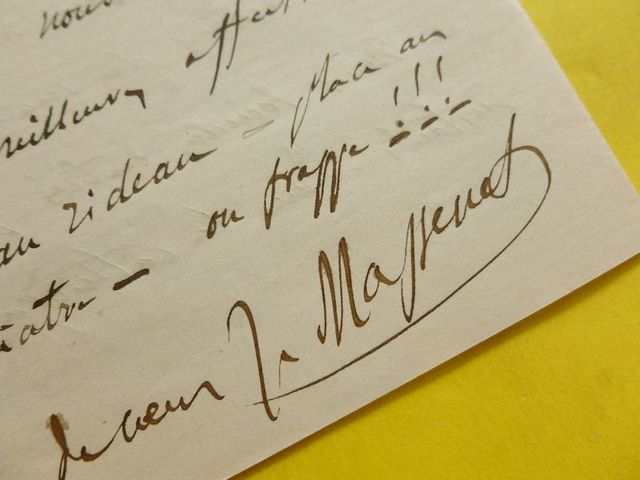 nous
meilleurs effet
au rideau – place au
éatre – on frappe !!!
de cœur J. Massenet